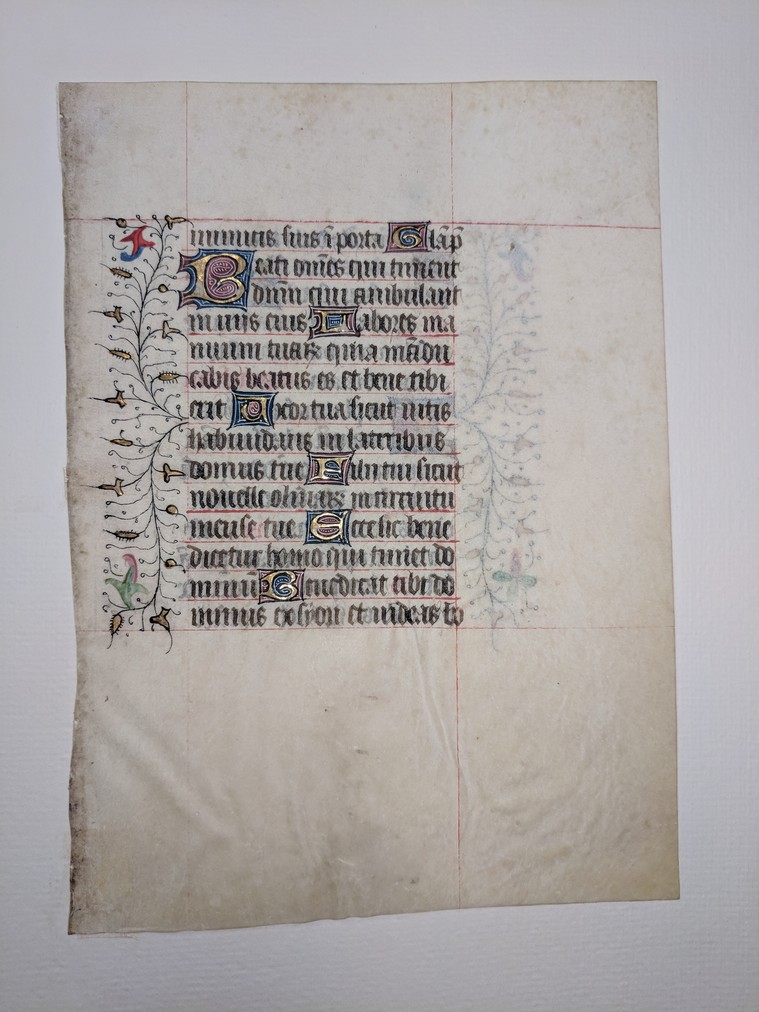 inimicis suis ĩ porta Glãp
Beati om̃es qui timent
dñm qui ambulant
in uiis eius Labores ma
nuum tuaꝝ quia mãdu
cabis beatus es et bene tibi
erit Uxor tua sicut uitis
habundans in lateribus
domus tue Filii tui sicut
nouelle oliuaꝝ in circuitu
mense tue Ecce sic bene
dicetur homo qui timet do
minũ Benedicat tibi do
minus ex syon et uideas bo